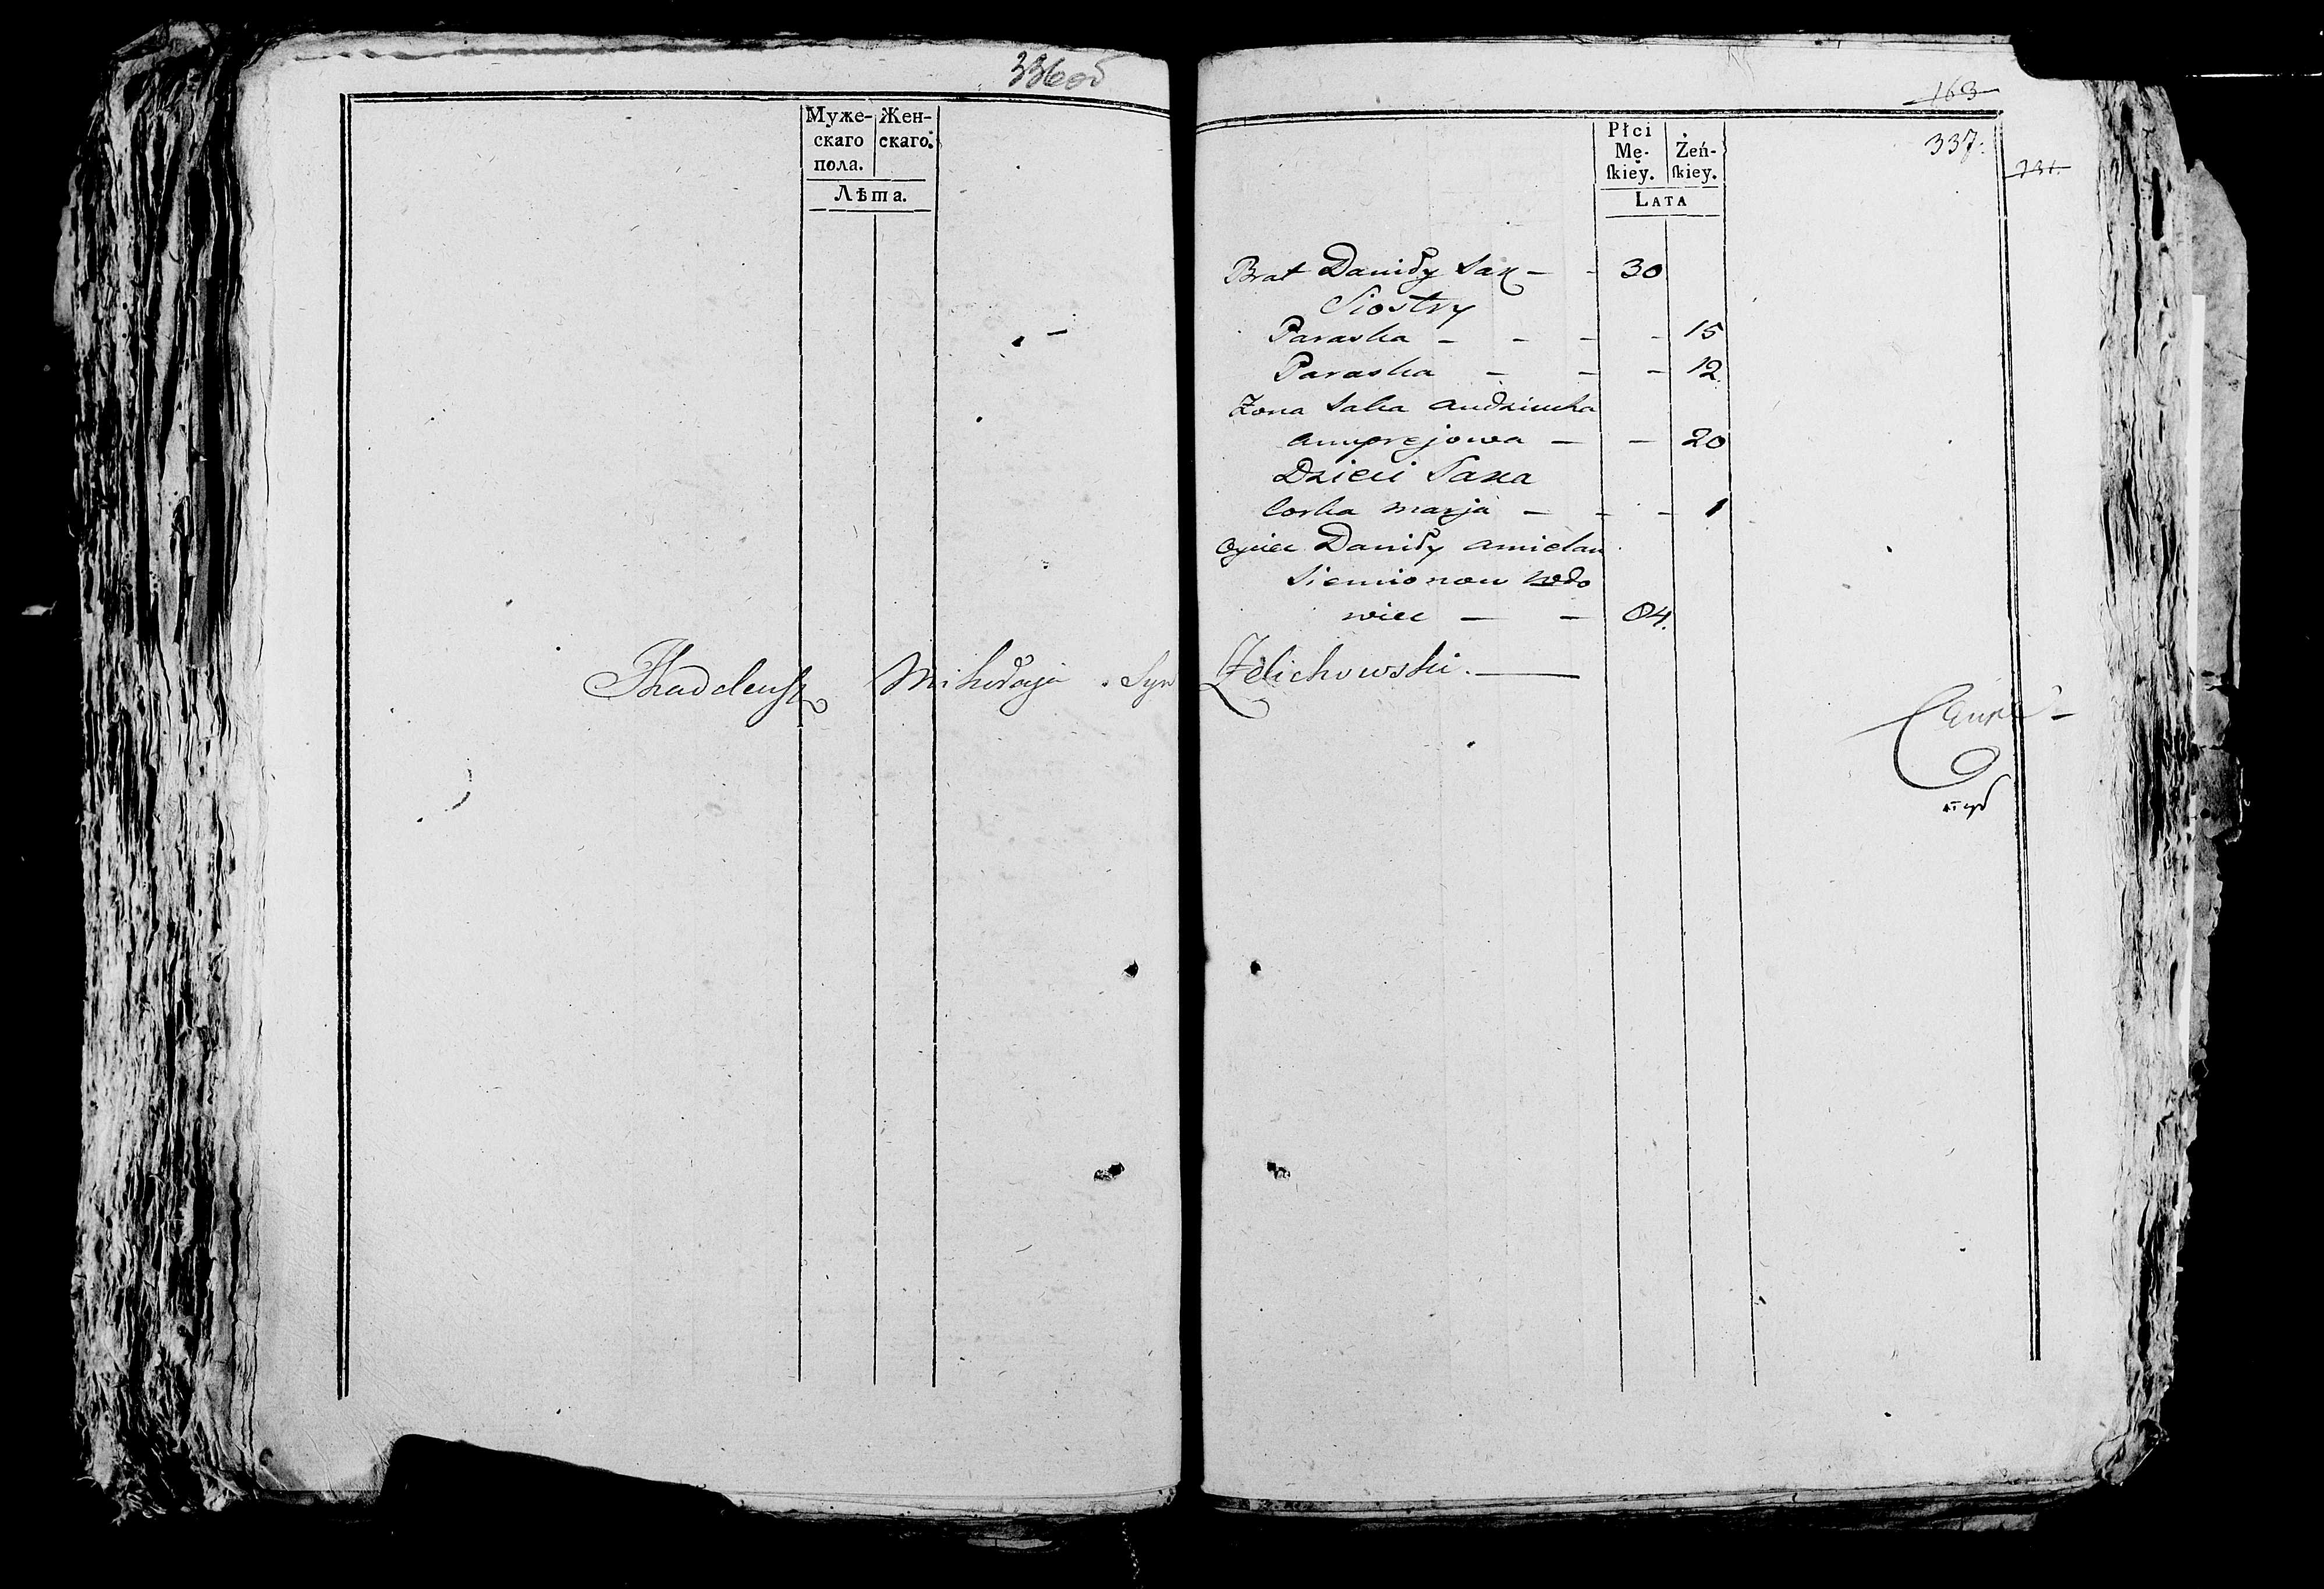 336 об
Муже-
скаго
пола.
Жен-
скаго.
Лѣта.
163
337.
731.
Płci
Mę-
ſkiey.
Żeń-
ſkiey.
LATA
Brat Daniły Sak - - 30
Siostry
Paraska - - - - 15
Paraska - - - 12
Żona Saka Audziucha
anuprejowa - - 20
Dzieci Saka
Corka marja - - - 1
Oyciec Daniły amielan
Siemionow wdo
wiec - - 84.
Thaddeusz Mikołaja Syn Żelichowski.